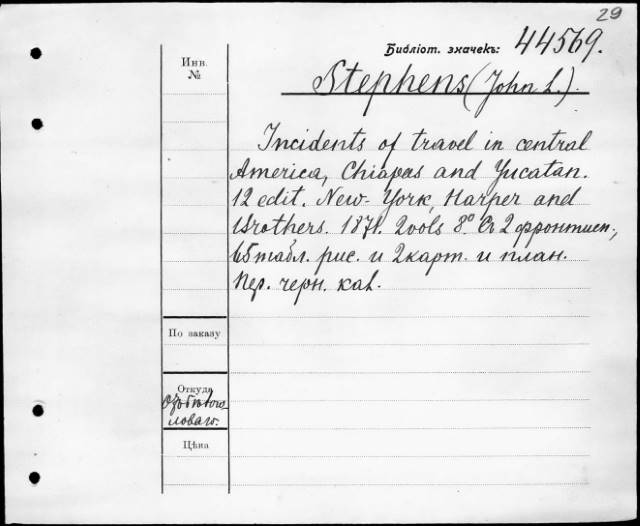 29
Библіот. значекъ: 44569.
Инв.
№
Stephens (John L.).
Incidents of travel in central
America, Chiapas and Yucatan.
12 edit. New-York, Harper and
Brothers. 1871. 2vols 8º. Съ 2 фронтисп.,
65 табл. рис. и 2 карт. и план.
Пер. черн. кал.
По заказу
Откуда
ловаго.
Цѣна